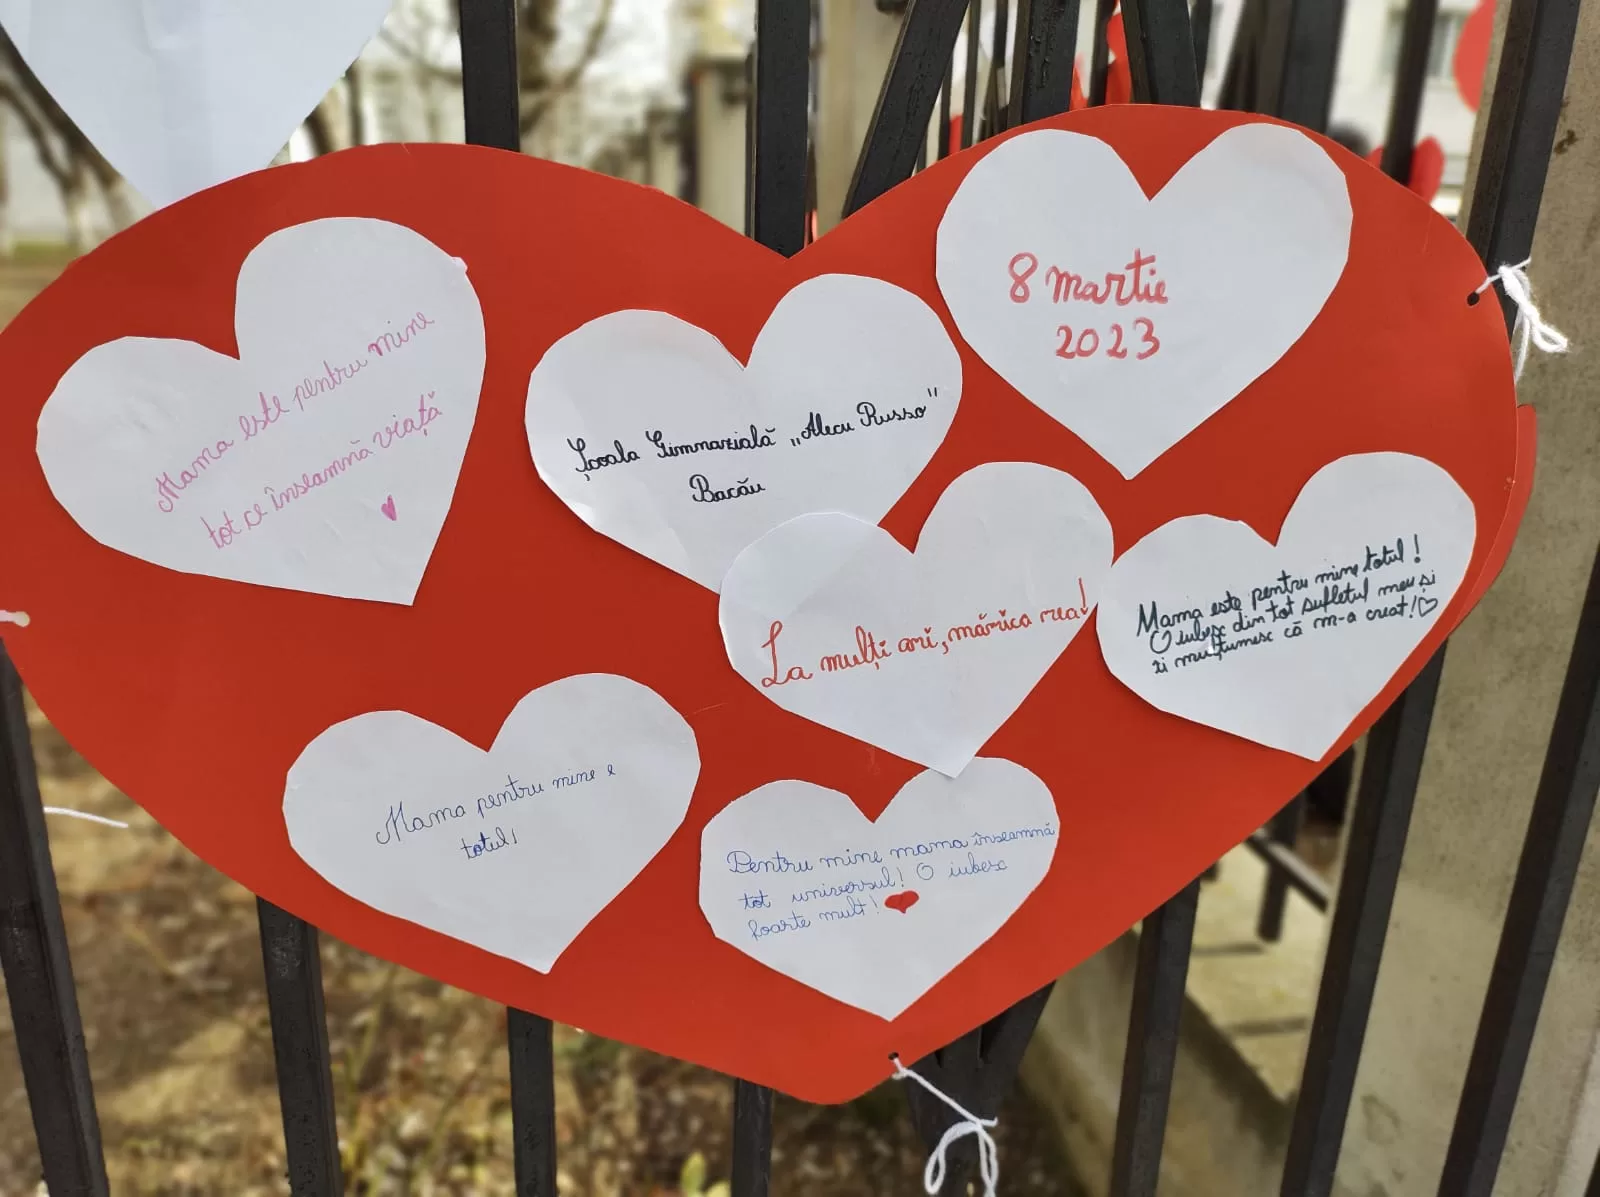 Mama este pentru mine
tot ce înseamnă viață
Școala Gimnazială „Alecu Russo”
Bacău
8 martie
2023
La mulți ani, mămica mea!
Mama este pentru mine totul!
O iubesc din tot sufletul meu și
îi mulțumesc că m-a creat!
Mama pentru mine e
totul!
Pentru mine mama înseamnă
tot universul! O iubesc
foarte mult!